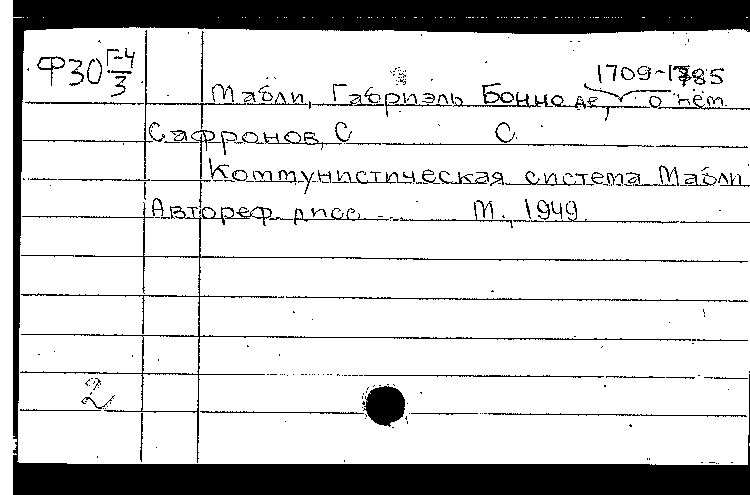 Ф30 Г-4/3
1709-1785
Мабли, Габриэль Бонно де, о нём
Сафронов, С С
Коммунистическая система Мабли
Автореф. дисс. ... М., 1949.
2